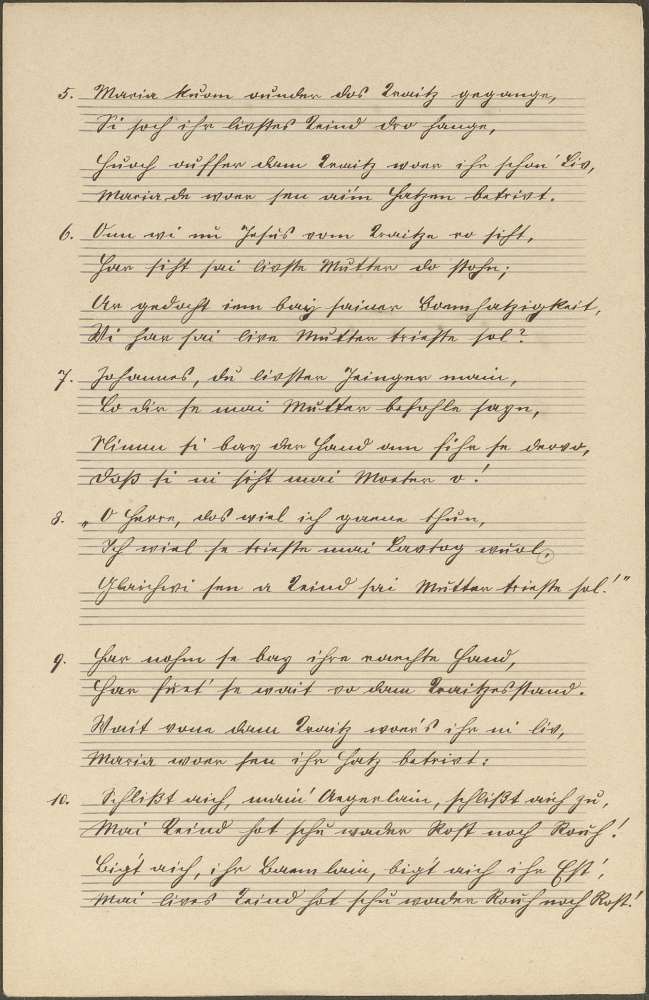 5. Maria kuom ounder dos Kraitz gegange,
Si soch ihr livstes Keind dro hange,
Huoch ouffer dam Kraitz woer ihr schon' Liv,
Maria de woer sen aim Hatzen betrivt.
6. Onn wi nu Jesus vom Kraitze ro siht,
Har siht sai livste Mutter do stohn;
Ar gedocht inn bay sainer Boemhatzigkeit,
Wi har sai live Mutter trieste sol?
7. Johannes, du livster Jeinger main,
Lo dir se mai Mutter befohle sayn,
Nimm si bay der Hand onn fihr se dervo,
Doß si ni siht mai Morter o!
8. „O Herre, dos wiel ich gaene thun,
Ich wiel se trieste mai Lavtog wuol,
Glaichwi sen a Keind sai Mutter trieste sol!"
9. Har nohm se bay ihre raechte Hand,
Har fuet' se wait vo dam Kraitzesstand.
Wait vone dam Kraitz woer's ihr ni liv,
Maria woer sen ihr Hatz betrivt:
10. Schlißt aich, main' Aegerlain, schlißt aich zu,
Mai Keind hot schu wader Rost noch Rouh!
Bigt aich, ihr Baemlain, bigt aich ihr Est',
Mai lives Keind hot schu wader Rouh noch Rost!